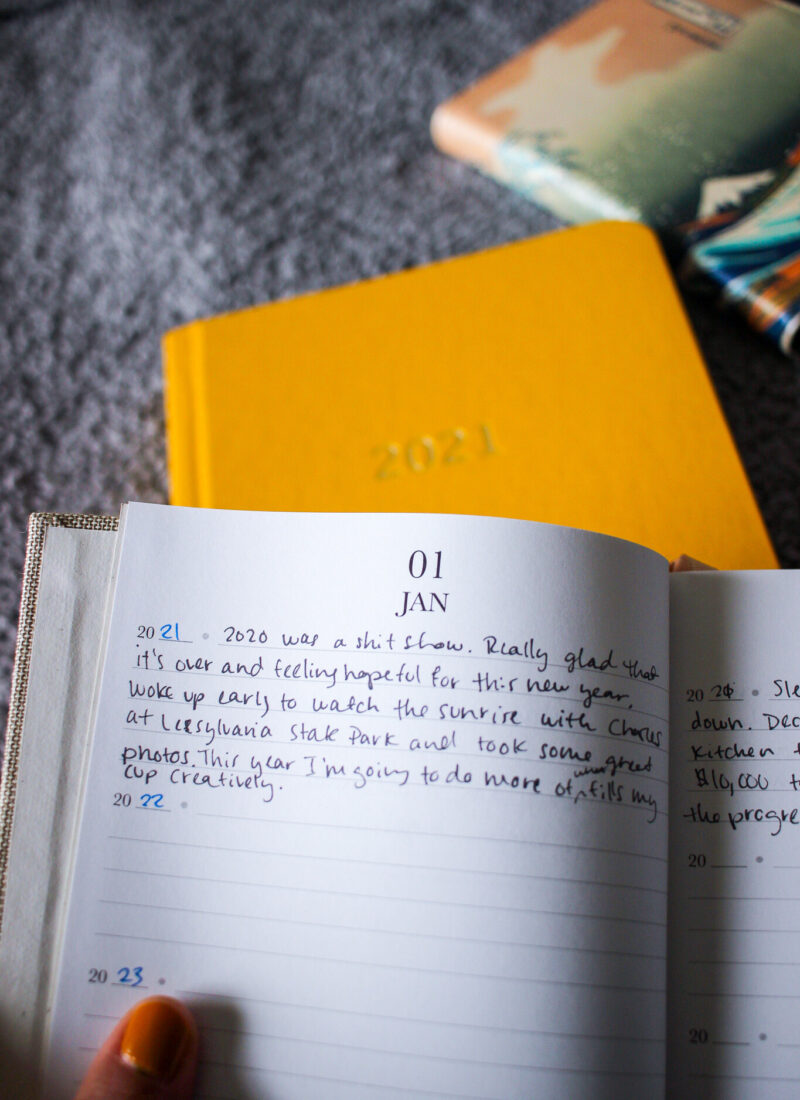 2021
01
JAN
2021 • 2020 was a shit show. Really glad that
it's over and feeling hopeful for this new year.
Woke up early to watch the sunrise with Charles
at Leesylvania State Park and took some great
photos. This year I'm going to do more of what fills my
cup creatively.
2022 •
2023 •
20 •
down. Dec
kitchen
$10,000 to
the progre
20 •
20 •